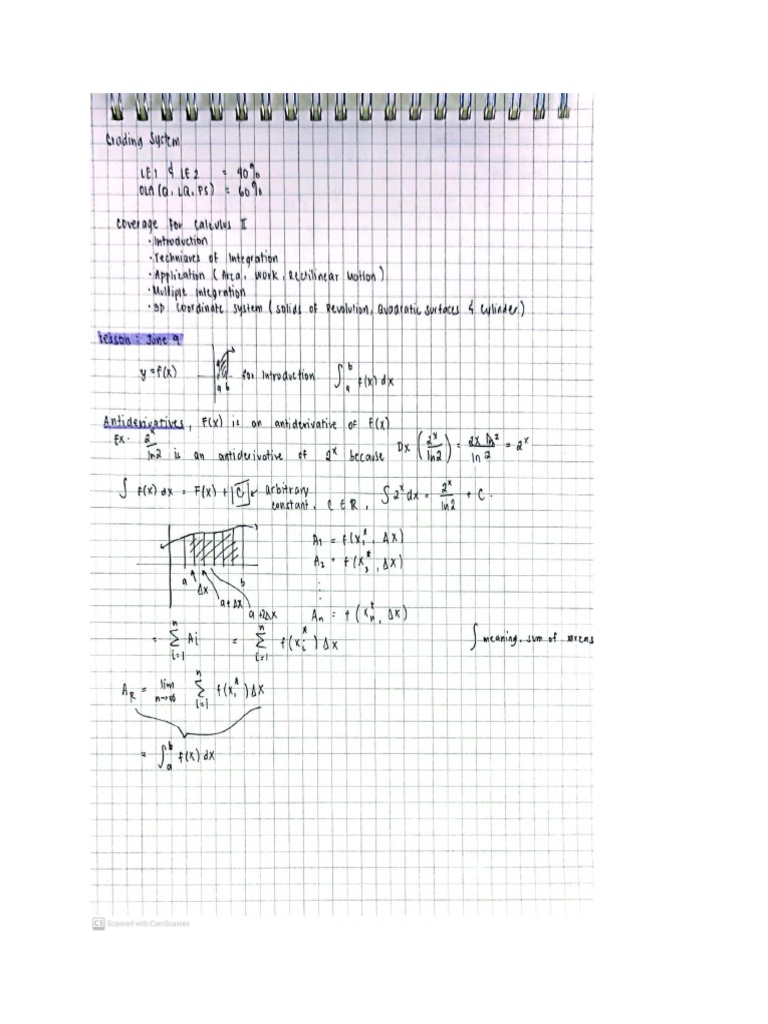 Grading System
LE1 & LE2 = 40%
OLA (Q, LQ, PS) = 60%
Coverage for Calculus II
• Introduction
• Techniques of Integration
• Application (Area, Work, Rectilinear Motion)
• Multiple Integration
• 3D Coordinate System (Solids of Revolution, Quadratic Surfaces & Cylinder)
Lesson: June 9
y = f(x) a b for Introduction ∫_a^b f(x) dx
Antiderivatives, F(x) is an antiderivative of f(x)
Ex. 2^x/ln2 is an antiderivative of 2^x because Dx (2^x/ln2) = 2^x ln2/ln 2 = 2^x
∫ f(x) dx = F(x) + C ← arbitrary constant, C ∈ R, ∫2^x dx = 2^x/ln2 + C.
A₁ = f(x₁*, Δx)
A₂ = f(x₂*, Δx)
⋮
a Δx b
a+Δx
a+2Δx Aₙ = f(xₙ*, Δx)
= Σ_{i=1}^n Ai = Σ_{i=1}^n f(xᵢ*) Δx ∫ meaning, sum of areas
A_R = lim_{n→∞} Σ_{i=1}^n f(xᵢ*) Δx
= ∫_a^b f(x) dx
CS Scanned with CamScanner